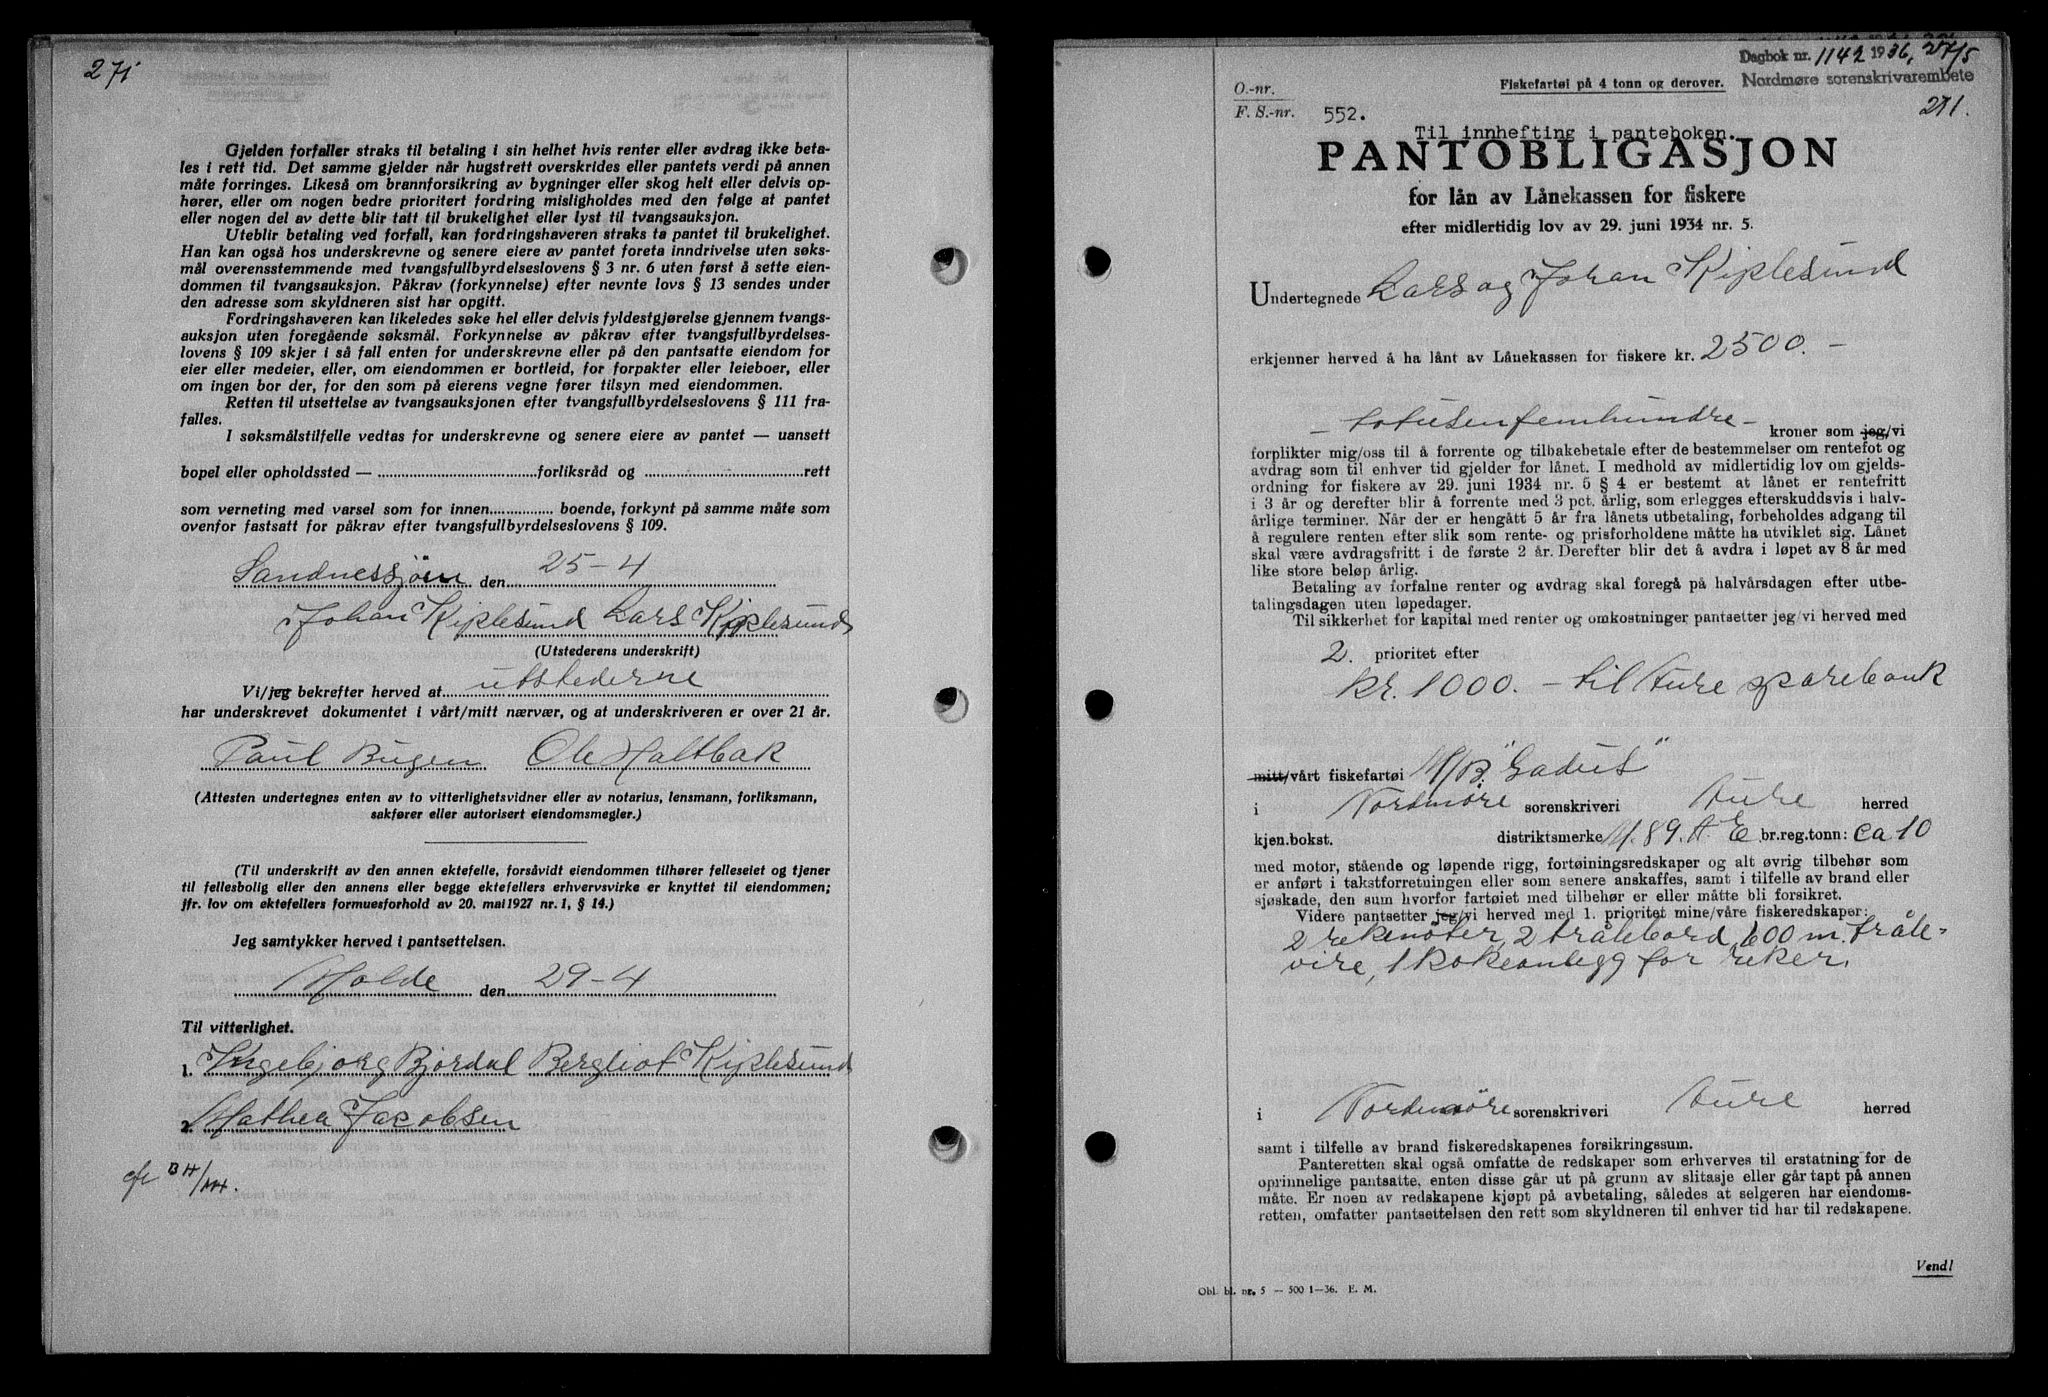 271
Gjelden forfaller straks til betaling i sin helhet hvis renter eller avdrag ikke beta-
les i rett tid. Det samme gjelder når hugstrett overskrides eller pantets verdi på annen
måte forringes. Likeså om brannforsikring av bygninger eller skog helt eller delvis op-
hører, eller om nogen bedre prioritert fordring misligholdes med den følge at pantet
eller nogen del av dette blir tatt til brukelighet eller lyst til tvangsauksjon.
Uteblir betaling ved forfall, kan fordringshaveren straks ta pantet til brukelighet.
Han kan også hos underskrevne og senere eiere av pantet foreta inndrivelse uten søks-
mål overensstemmende med tvangsfullbyrdelseslovens § 3 nr. 6 uten først å sette eien-
dommen til tvangsauksjon. Påkrav (forkynnelse) efter nevnte lovs § 13 sendes under
den adresse som skyldneren sist har opgitt.
Fordringshaveren kan likeledes søke hel eller delvis fyldestgjørelse gjennem tvangs-
auksjon uten foregående søksmål. Forkynnelse av påkrav efter tvangsfullbyrdelses-
lovens § 109 skjer i så fall enten for underskrevne eller på den pantsatte eiendom for
eier eller medeier, eller, om eiendommen er bortleid, for forpakter eller leieboer, eller
om ingen bor der, for den som på eierens vegne fører tilsyn med eiendommen.
Retten til utsettelse av tvangsauksjonen efter tvangsfullbyrdelseslovens § 111 fra-
falles.
I søksmålstilfelle vedtas for underskrevne og senere eiere av pantet — uansett
bopel eller opholdssted — forliksråd og rett
som verneting med varsel som for innen boende, forkynt på samme måte som
ovenfor fastsatt for påkrav efter tvangsfullbyrdelseslovens § 109.
Sandnessjøen den 25-4
Johan Kiplesund Lars Kiplesund
(Utstederens underskrift)
Vi/jeg bekrefter herved at utstederne
har underskrevet dokumentet i vårt/mitt nærvær, og at underskriveren er over 21 år.
Paul Bugen Ole Haltbak
(Attesten undertegnes enten av to vitterlighetsvidner eller av notarius, lensmann, forliksmann,
sakfører eller autorisert eiendomsmegler.)
(Til underskrift av den annen ektefelle, forsåvidt eiendommen tilhører felleseiet og tjener
til fellesbolig eller den annens eller begge ektefellers erhvervsvirke er knyttet til eiendommen;
jfr. lov om ektefellers formuesforhold av 20. mai 1927 nr. 1, § 14.)
Jeg samtykker herved i pantsettelsen.
Molde den 29-4
Til vitterlighet.
1. Ingebjorg Bjordal Bergliot Kiplesund
2. Mathea Jacobsen
Dagbok nr. 1142 1936, 27/5
Nordmøre sorenskrivarembete
271.
Fiskefartøi på 4 tonn og derover.
O.-nr.
F. S.-nr. 552.
Til innhefting i panteboken.
PANTOBLIGASJON
for lån av Lånekassen for fiskere
efter midlertidig lov av 29. juni 1934 nr. 5.
Undertegnede Lars og Johan Kiplesund
erkjenner herved å ha lånt av Lånekassen for fiskere kr. 2500. —
— totusenfemhundre — kroner som jeg/vi
forplikter mig/oss til å forrente og tilbakebetale efter de bestemmelser om rentefot og
avdrag som til enhver tid gjelder for lånet. I medhold av midlertidig lov om gjelds-
ordning for fiskere av 29. juni 1934 nr. 5 § 4 er bestemt at lånet er rentefritt
i 3 år og derefter blir å forrente med 3 pct. årlig, som erlegges efterskuddsvis i halv-
årlige terminer. Når der er hengått 5 år fra lånets utbetaling, forbeholdes adgang til
å regulere renten efter slik som rente- og prisforholdene måtte ha utviklet sig. Lånet
skal være avdragsfritt i de første 2 år. Derefter blir det å avdra i løpet av 8 år med
like store beløp årlig.
Betaling av forfalne renter og avdrag skal foregå på halvårsdagen efter utbe-
talingsdagen uten løpedager.
Til sikkerhet for kapital med renter og omkostninger pantsetter jeg/vi herved med
2. prioritet efter
kr. 1000. — til Aure sparebank
mitt/vårt fiskefartøi M/B. "Gadus"
i Nordmøre sorenskriveri Aure herred
kjen.bokst. distriktsmerke M. 89. A. E br.reg.tonn: ca 10
med motor, stående og løpende rigg, fortøiningsredskaper og alt øvrig tilbehør som
er anført i takstforretningen eller som senere anskaffes, samt i tilfelle av brand eller
sjøskade, den sum hvorfor fartøiet med tilbehør er eller måtte bli forsikret.
Videre pantsetter jeg/vi herved med 1. prioritet mine/våre fiskeredskaper:
2 rekenøter, 2 trålebord, 600 m. tråle-
vire, 1 kokeanlegg for reker.
i Nordmøre sorenskriveri Aure herred
samt i tilfelle av brand fiskeredskapenes forsikringssum.
Panteretten skal også omfatte de redskaper som erhverves til erstatning for de
oprinnelige pantsatte, enten disse går ut på grunn av slitasje eller går tapt på annen
måte. Er noen av redskapene kjøpt på avbetaling, således at selgeren har eiendoms-
retten, omfatter pantsettelsen den rett som skyldneren til enhver tid har til redskapene.
Vend!
Obl. bl. nr. 5 — 500 1—36. E. M.